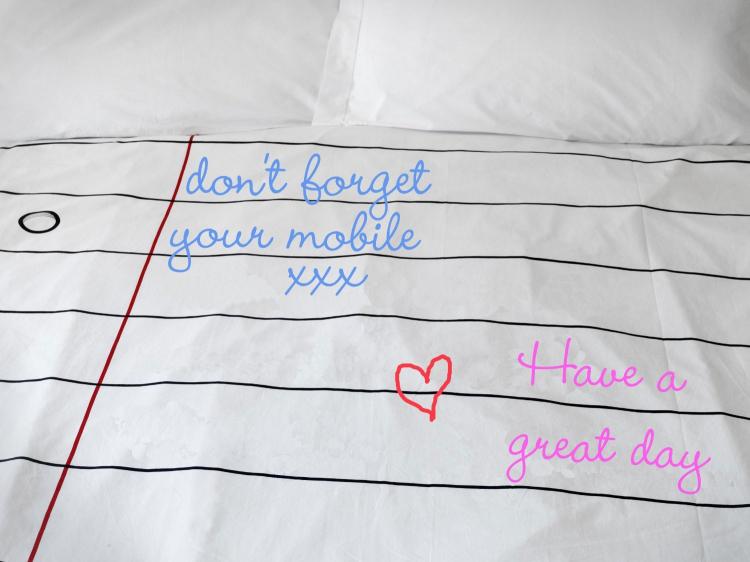 don't forget
your mobile
xxx
Have a
great day